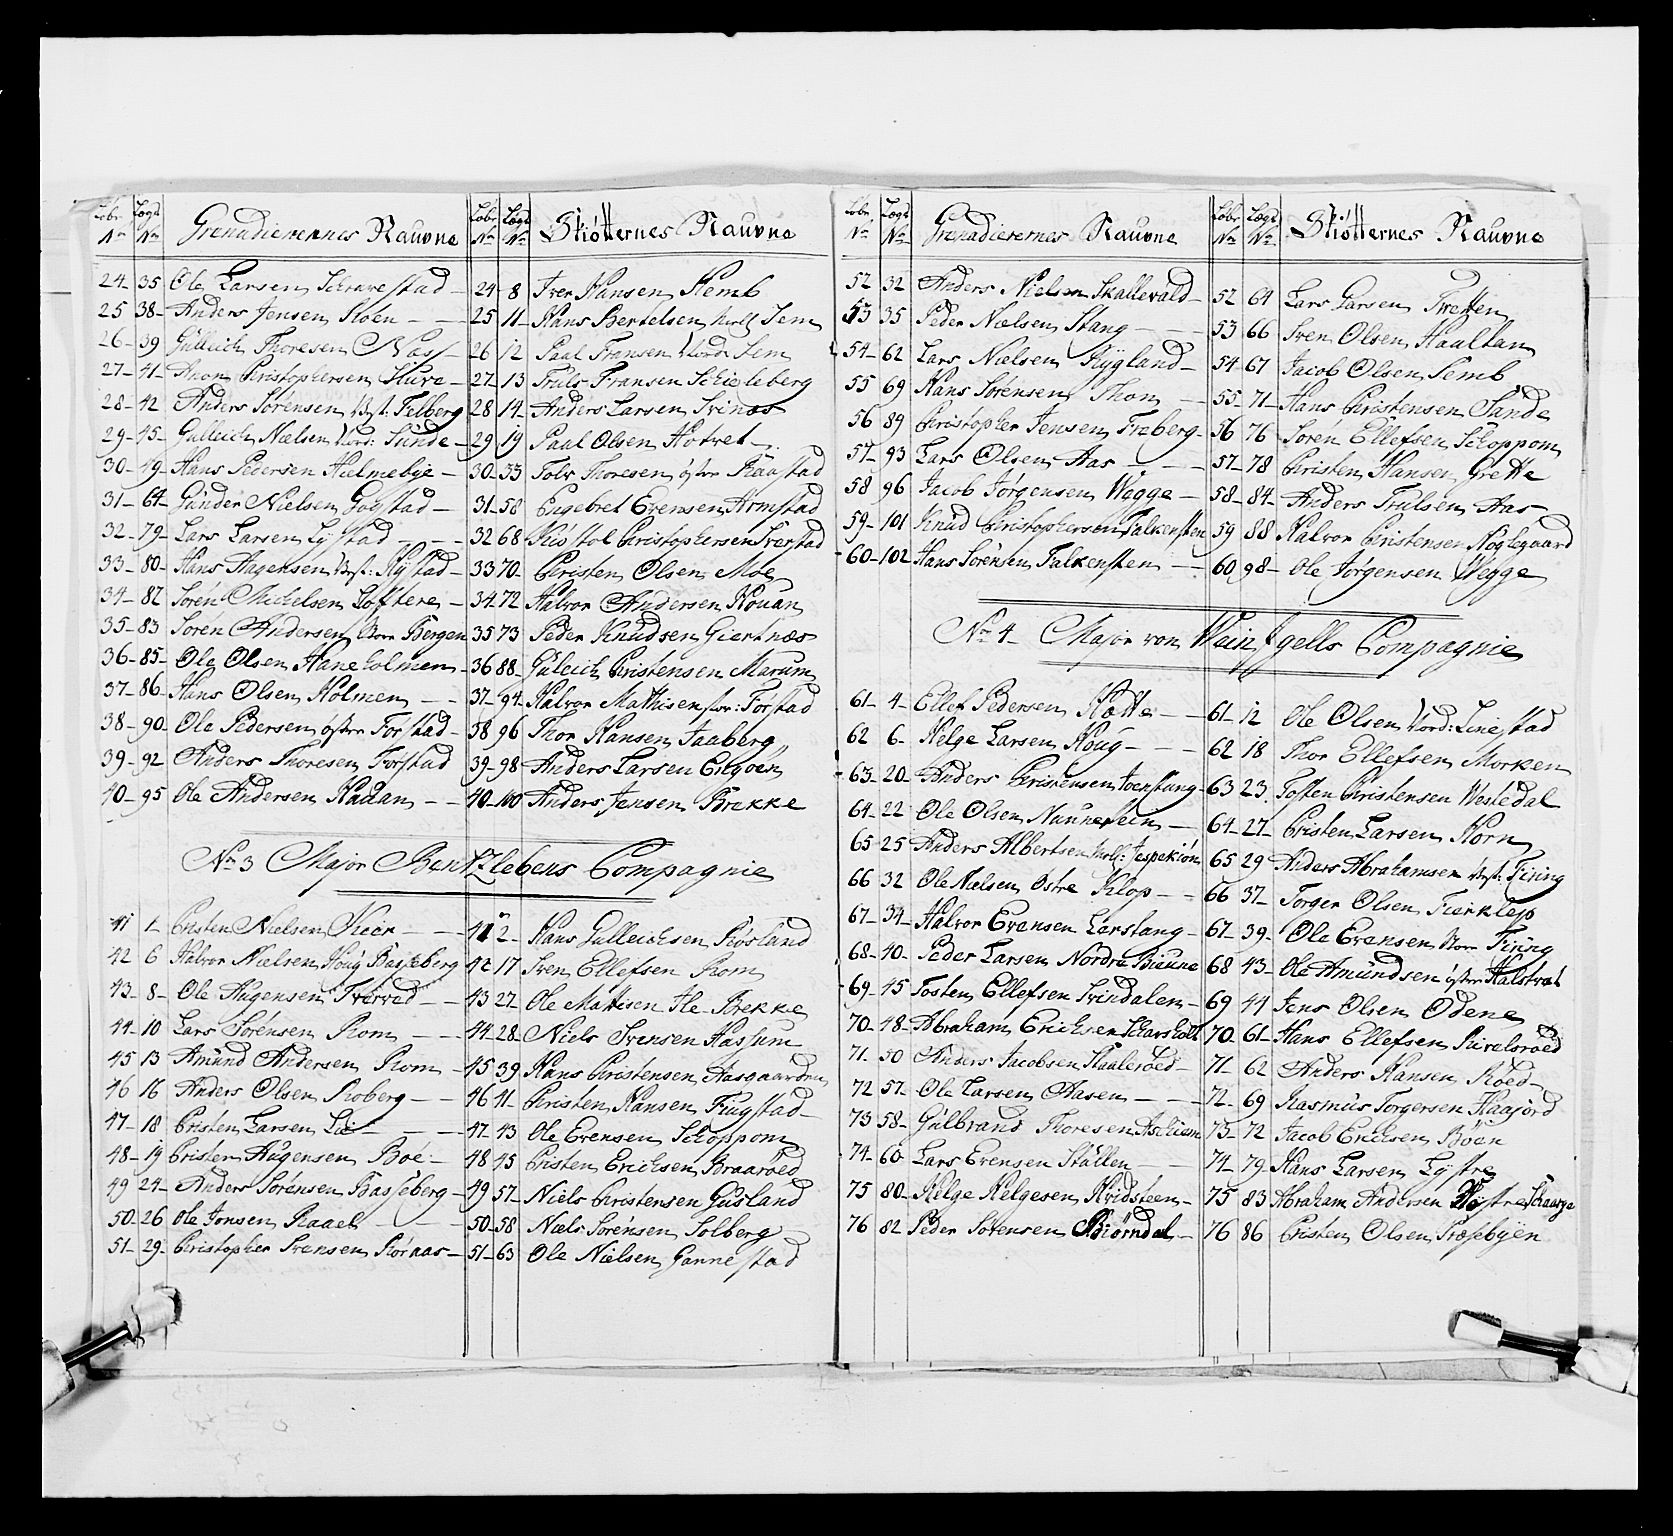 Løbe Nº Lægd Nº Grenadierernes Naune
24 35 Ole Larsen
25 38 Anders Jensen Roen
26 39 Gulleich Thoresen Næss
27 41 Christophersen Sture
28 42 Anders Sørensen Vest: Felberg
29 45 Gulleich Nielsen Nord: Sunde
30 49 Hans Pedersen Hielmebye
31 64 Gunder Nielsen Gogstad
32 79 Lars Larsen Lystad
33 80 Hans Aagensen Vest: Nystad
34 82 Søren Michelsen Lofftere
35 83 Søren Andersen Store Bergen
36 85 Ole Olsen Haneholmen
37 86 Hans Olsen Holmen
38 90 Ole Pedersen østre Forstad
39 92 Anders Thoresen Forstad
40 95 Ole Andersen Hadan
Løbe Nº Lægd Nº Skiøtternes Naune
24 8 Iver Hansen Hemb
25 11 Hans Bertelsen Sem
26 12 Paal Fransen Nord: Sem
27 13 Truls Fransen Schieleberg
28 14 Anders Larsen Srinæs
29 19 Paal Olsen Hotvet
30 33 Tolv Thoresen østre Raastad
31 58 Engebret Evensen Armstad
32 68 Kiøstol Christophersen Sverstad
33 70 Christen Olsen Moe
34 72 Halvor Andersen Houan
35 73 Peder Knudsen Giertnæs
36 88 Guleich Christensen Marum
37 94 Halvor Mathisen stor: Forstad
38 96 Thor Hansen Aaberg
39 98 Anders Larsen
40 100 Anders Jensen Brekke
Nº 3 Major Bentzlebens Compagnie
41 1 Cristen Nielsen Kiær
42 6 Halvor Nielsen Houg Basseberg
43 8 Ole Augensen Tveved
44 10 Lars Sørensen Rom
45 13 Amund Andersen Rom
46 16 Anders Olsen Roberg
47 18 Cristen Larsen Lie
48 19 Cristen Augensen Boe
49 24 Anders Sørensen Basseberg
50 26 Ole Jonsen Raael
51 29 Christopher Svensen Rønaas
41 2 Hans Gulleichsen Røsland
42 17 Sven Ellefsen Rom
43 22 Ole Mattisen Ile Brekke
44 28 Niels Svensen Hassum
45 39 Hans Christensen Aasgaarden
46 41 Christen Hansen Fingstad
47 43 Ole Evensen Schoppom
48 45 Cristen Erichsen Braarøed
49 57 Niels Christensen Gusland
50 58 Næls Sørensen Solberg
51 63 Ole Nielsen Gannestad
Løbe Nº Lægd Nº Grenadierernes Naune
52 32 Anders Nielsen Skallevald
53 35 Peder Nælsen Stang
54 62 Lars Nælsen Rygland
55 69 Hans Sørensen Thon
56 89 Christopher Jensen Freberg
57 93 Lars Olsen Aas
58 96 Jacob Jørgensen Wegge
59 101 Knud Christophersen Falkensten
60 102 Hans Sørensen Falkensten
Løbe Nº Lægd Nº Skiøtternes Naune
52 64 Lars Larsen Tveten
53 66 Sven Olsen Haaltan
54 67 Jacob Olsen Semb
55 71 Hans Christensen Sande
56 76 Søren Ellefsen Schoppom
57 78 Christen Hansen Grette
58 84 Anders Trulsen Aas
59 88 Halvor Christensen Nøglegaard
60 98 Ole Jørgensen Wegge
Nº 4 Major von Weinzgells Compagnie
61 4 Ellef Pedersen Hotte
62 6 Helge Larsen Houg
63 20 Anders Christensen
64 22 Ole Olsen
65 25 Anders Albertsen
66 32 Ole Nielsen Østre Klop
67 34 Halvor Evensen Lorstang
68 40 Peder Larsen Nordre Biune
69 45 Tosten Ellefsen Svindalen
70 48 Abraham Erichsen Skarsholt
71 50 Anders Jacobsen Haalerøed
72 57 Ole Larsen Aasen
73 58 Gulbrand Thoresen
74 60 Lars Evensen Stullen
75 80 Helge Helgesen Hvidsteen
76 82 Peder Sørensen Biørndal
61 12 Ole Olsen Nord: Linestad
62 18 Thor Ellefsen Morken
63 23 Tosten Christensen Westedal
64 27 Cristen Larsen Horn
65 29 Anders Abrahamsen Vest: Firing
66 37 Torger Olsen Fierklep
67 39 Ole Evensen Stor Firing
68 43 Ole Amundsen østre Halstvet
69 44 Jens Olsen Odene
70 61 Hans Ellefsen Rivelsrøed
71 62 Anders Hansen Røed
72 69 Rasmus Torgersen Haajord
73 72 Jacob Erichsen Bøen
74 79 Hans Larsen Lystre
75 83 Abraham Andersen
76 86 Cristen Olsen Præstbyen